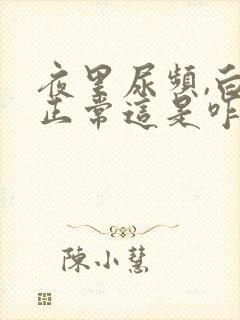 夜里尿頻,白
正常這是咋
陳小慧